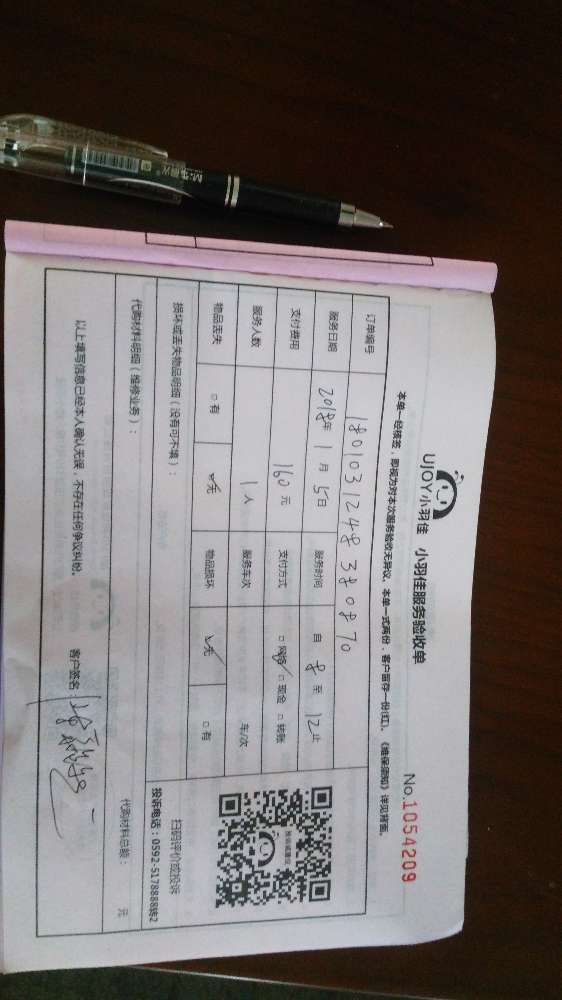 UJOY小羽佳 小羽佳服务验收单
No.1054209
本单一经核签，即视为对本次服务验收无异议。本单一式两份，客户留存一份(红)。《维保须知》详见背面。
订单编号 180103124838087 0
服务日期 2018年 1月 5日 服务时间 自 8 至 12止
支付费用 160元 支付方式 □ 网络 □ 现金 □ 转账
服务人数 1人 服务车次 车/次
物品丢失 □ 有 无 物品损坏 无 □ 有
扫码评价或投诉
投诉电话：0592-5178888转2
损坏或丢失物品明细（没有可不填）：
代购材料明细（维修业务）：
代购材料总额： 元
以上填写信息已经本人确认无误，不存在任何争议纠纷。
客户签名